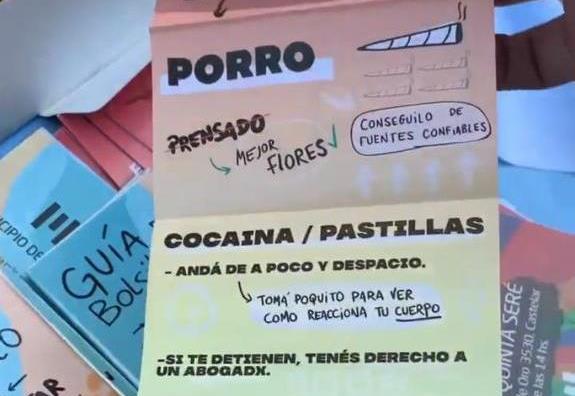 PORRO
PRENSADO
MEJOR
FLORES
CONSEGUILO DE
FUENTES CONFIABLES
COCAINA / PASTILLAS
- ANDÁ DE A POCO Y DESPACIO.
TOMÁ POQUITO PARA VER
COMO REACCIONA TU CUERPO
-SI TE DETIENEN, TENÉS DERECHO A
UN ABOGADX.
CIPIO DE
GUÍA
BOLSI
QUINTA SERÉ
de Oro 3530, Castelar
e las 14 hs